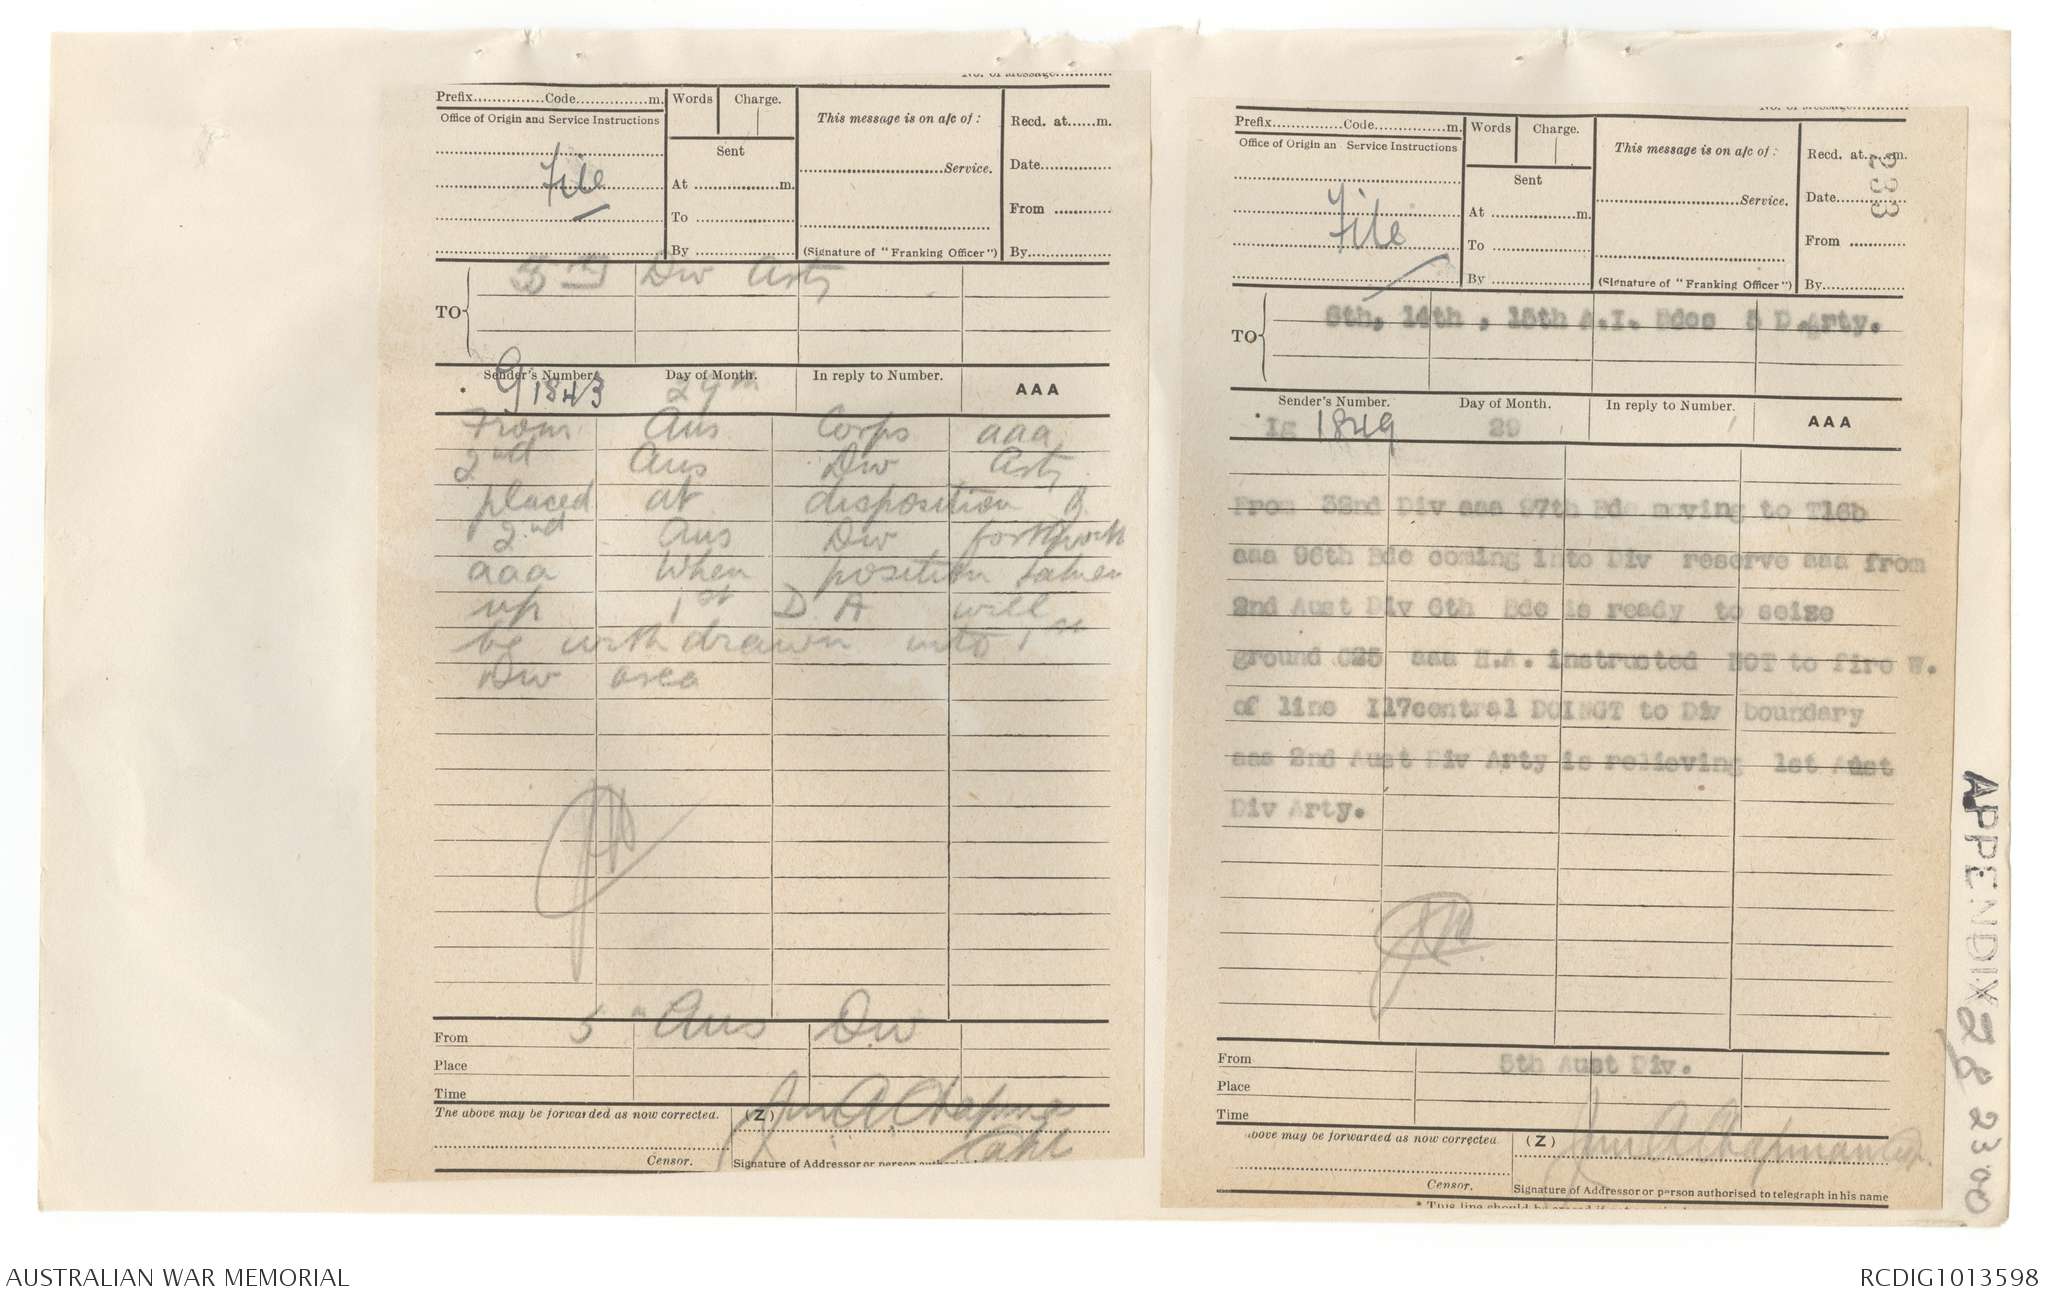 Prefix...............Code...............m.
Words
Charge.
Office of Origin and Service Instructions
File
Sent
At ...............m.
To ...............
By ...............
This message is on a/c of :
...............Service.
(Signature of "Franking Officer")
No. of Message............
Recd. at......m.
Date............
From ............
By............
TO
5th Div Arty
Sender's Number.
G 1843
Day of Month.
29th
In reply to Number.
AAA
From Aus Corps aaa
2nd Aus Div Arty
placed at disposition of
2nd Aus Div forthwith
aaa When position taken
up 1st D A will
be withdrawn into 1st
Div area
From
5th Aus Div
Place
Time
The above may be forwarded as now corrected.
(Z)
Jas A. Chapman
Capt
Censor.
Signature of Addressor or person
No. of Message............
Prefix...............Code...............m.
Words
Charge.
Office of Origin an Service Instructions
File
Sent
At ...............m.
To ...............
By ...............
This message is on a/c of :
...............Service.
(Signature of "Franking Officer")
Recd. at......m.
Date............
From ............
By............
233
TO
8th, 14th , 15th A.I. Bdes 5 D.Arty.
Sender's Number.
Ig 1849
Day of Month.
29
In reply to Number.
AAA
From 32nd Div aaa 97th Bde moving to T16b
aaa 96th Bde coming into Div reserve aaa from
2nd Aust Div 6th Bde is ready to seize
ground C25 aaa H.A. instructed NOT to fire W.
of line I17central DOINGT to Div boundary
aaa 2nd Aust Div Arty is relieving 1st Aust
Div Arty.
From
5th Aust Div.
Place
Time
above may be forwarded as now corrected
(Z)
Jas A Chapman Capt.
Censor.
Signature of Addressor or person authorised to telegraph in his name
* This line should be erased if not
APPENDIX 28 2300
AUSTRALIAN WAR MEMORIAL
RCDIG1013598